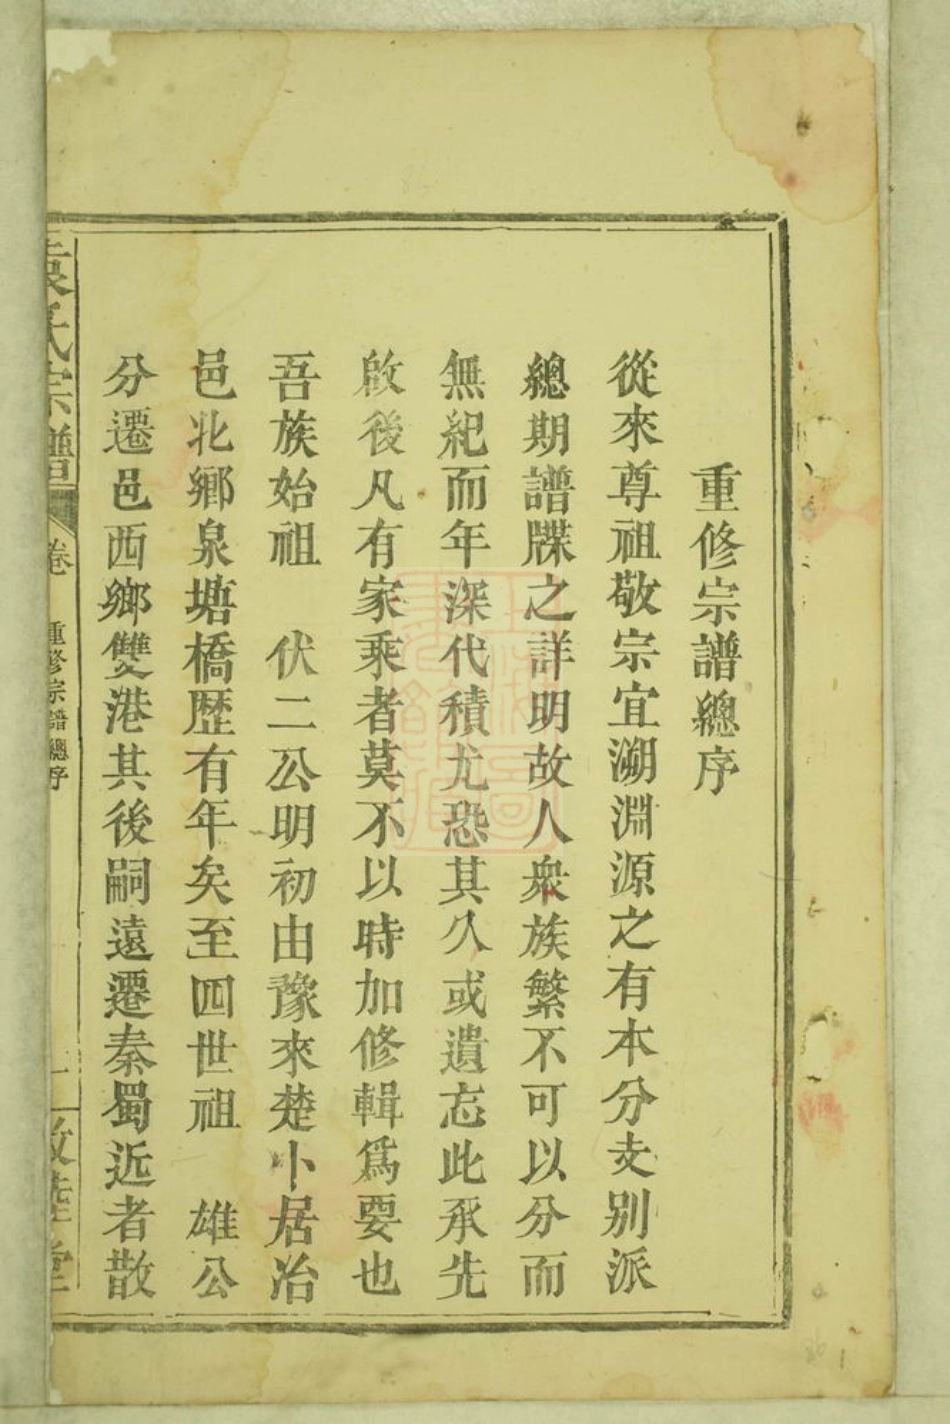 重修宗譜總序
從來尊祖敬宗宜溯淵源之有本分支别派
總期譜牒之詳明故人衆族繁不可以分而
無紀而年深代積尤恐其久或遺忘此承先
啟後凡有家乘者莫不以時加修輯爲要也
吾族始祖　伏二公明初由豫來楚卜居冶
邑北鄉泉塘橋歷有年矣至四世祖　雄公
分遷邑西鄉雙港其後嗣遠遷秦蜀近者散
袁氏宗譜 卷 重修宗譜總序 一 敦睦堂